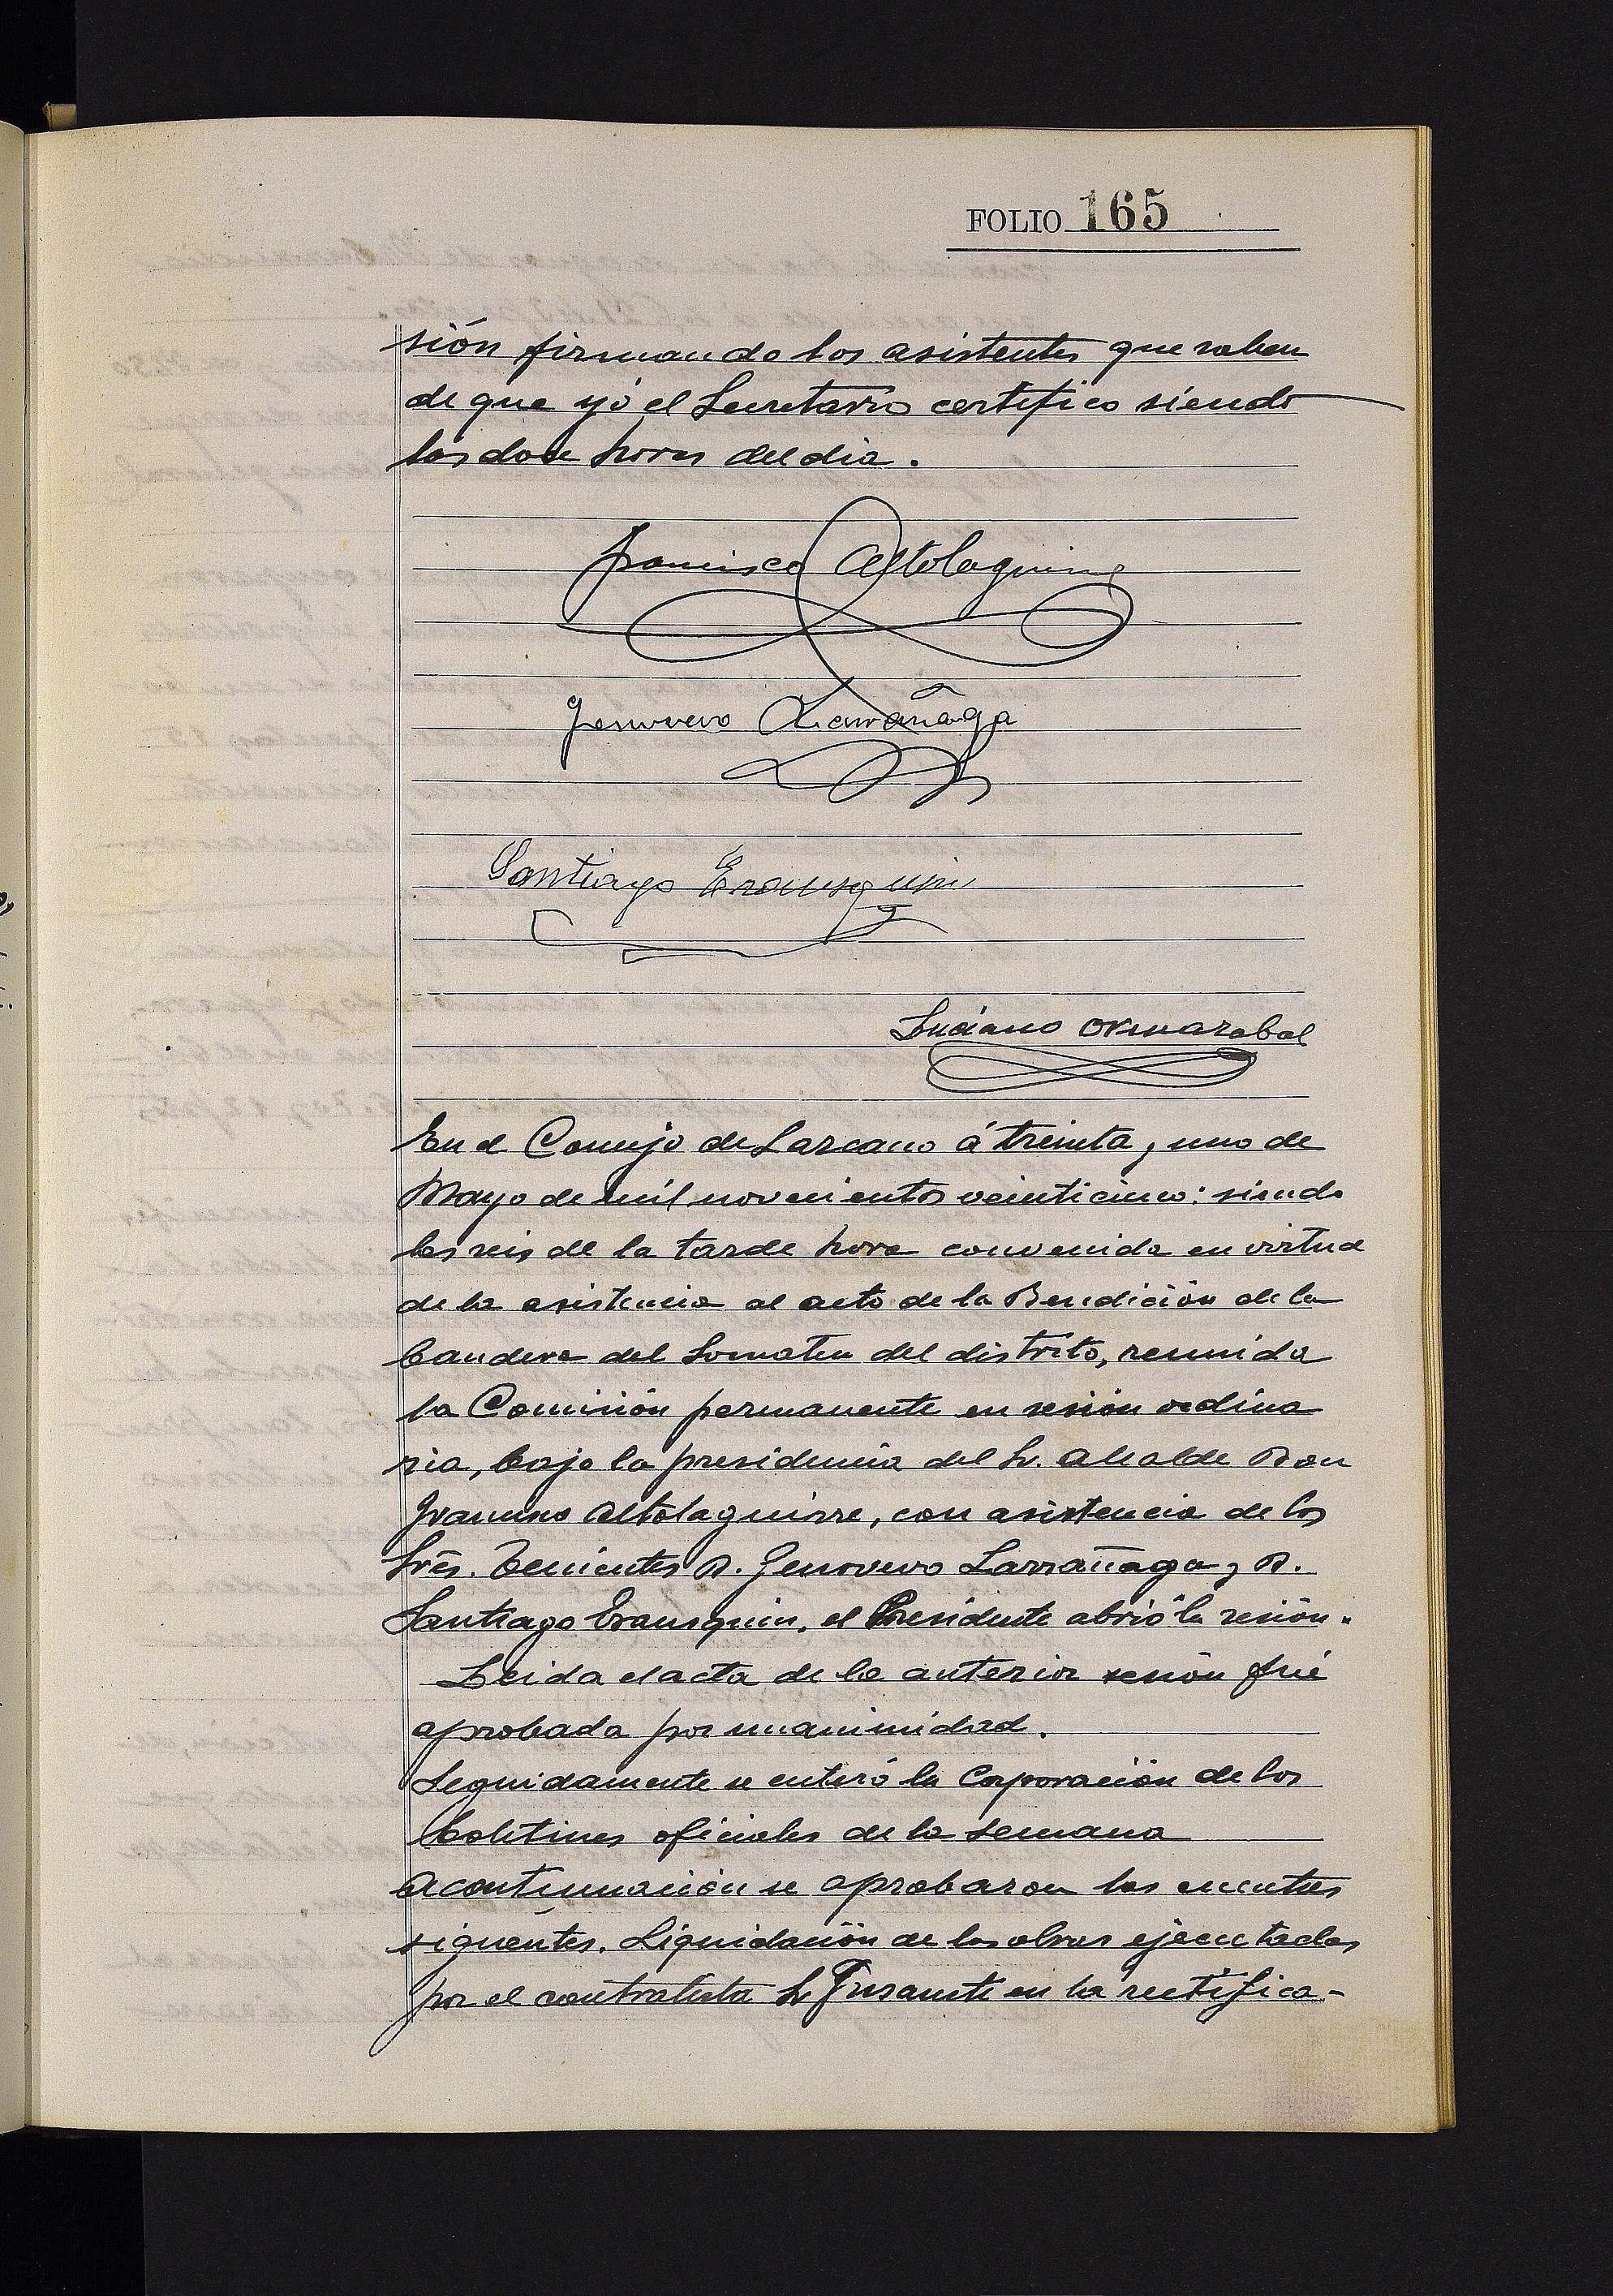 FOLIO 165
sión firmando los asistentes que saben
de que yó el Secretario certifico siendo
las doce horas del dia.
Francisco Altolaguirre
Genovevo Larrañaga
Santiago Erausquin
Luciano Ormazabal
En el Concejo de Lazcano á treinta y uno de
Mayo de mil novecientos veinticinco: siendo
las seis de la tarde hora convenida en virtud
de la asistencia al acto de la Bendición de la
bandera del Somaten del distrito, reunida
la Comisión permanente en sesión ordina
ria, bajo la presidencia del Sr. Alcalde Don
Francisco Altolaguirre, con asistencia de los
Srēs. Tenientes D. Genovevo Larrañaga y D.
Santiago Erausquin, el Presidente abrió la sesión.
Leida el acta de la anterior sesión fué
aprobada por unanimidad.
Seguidamente se enteró la Corporación de los
boletines oficiales de la semana
A continuación se aprobaron las cuentas
siguentes. Liquidación de las obras ejecutadas
por el contratista Sr en la rectifica-